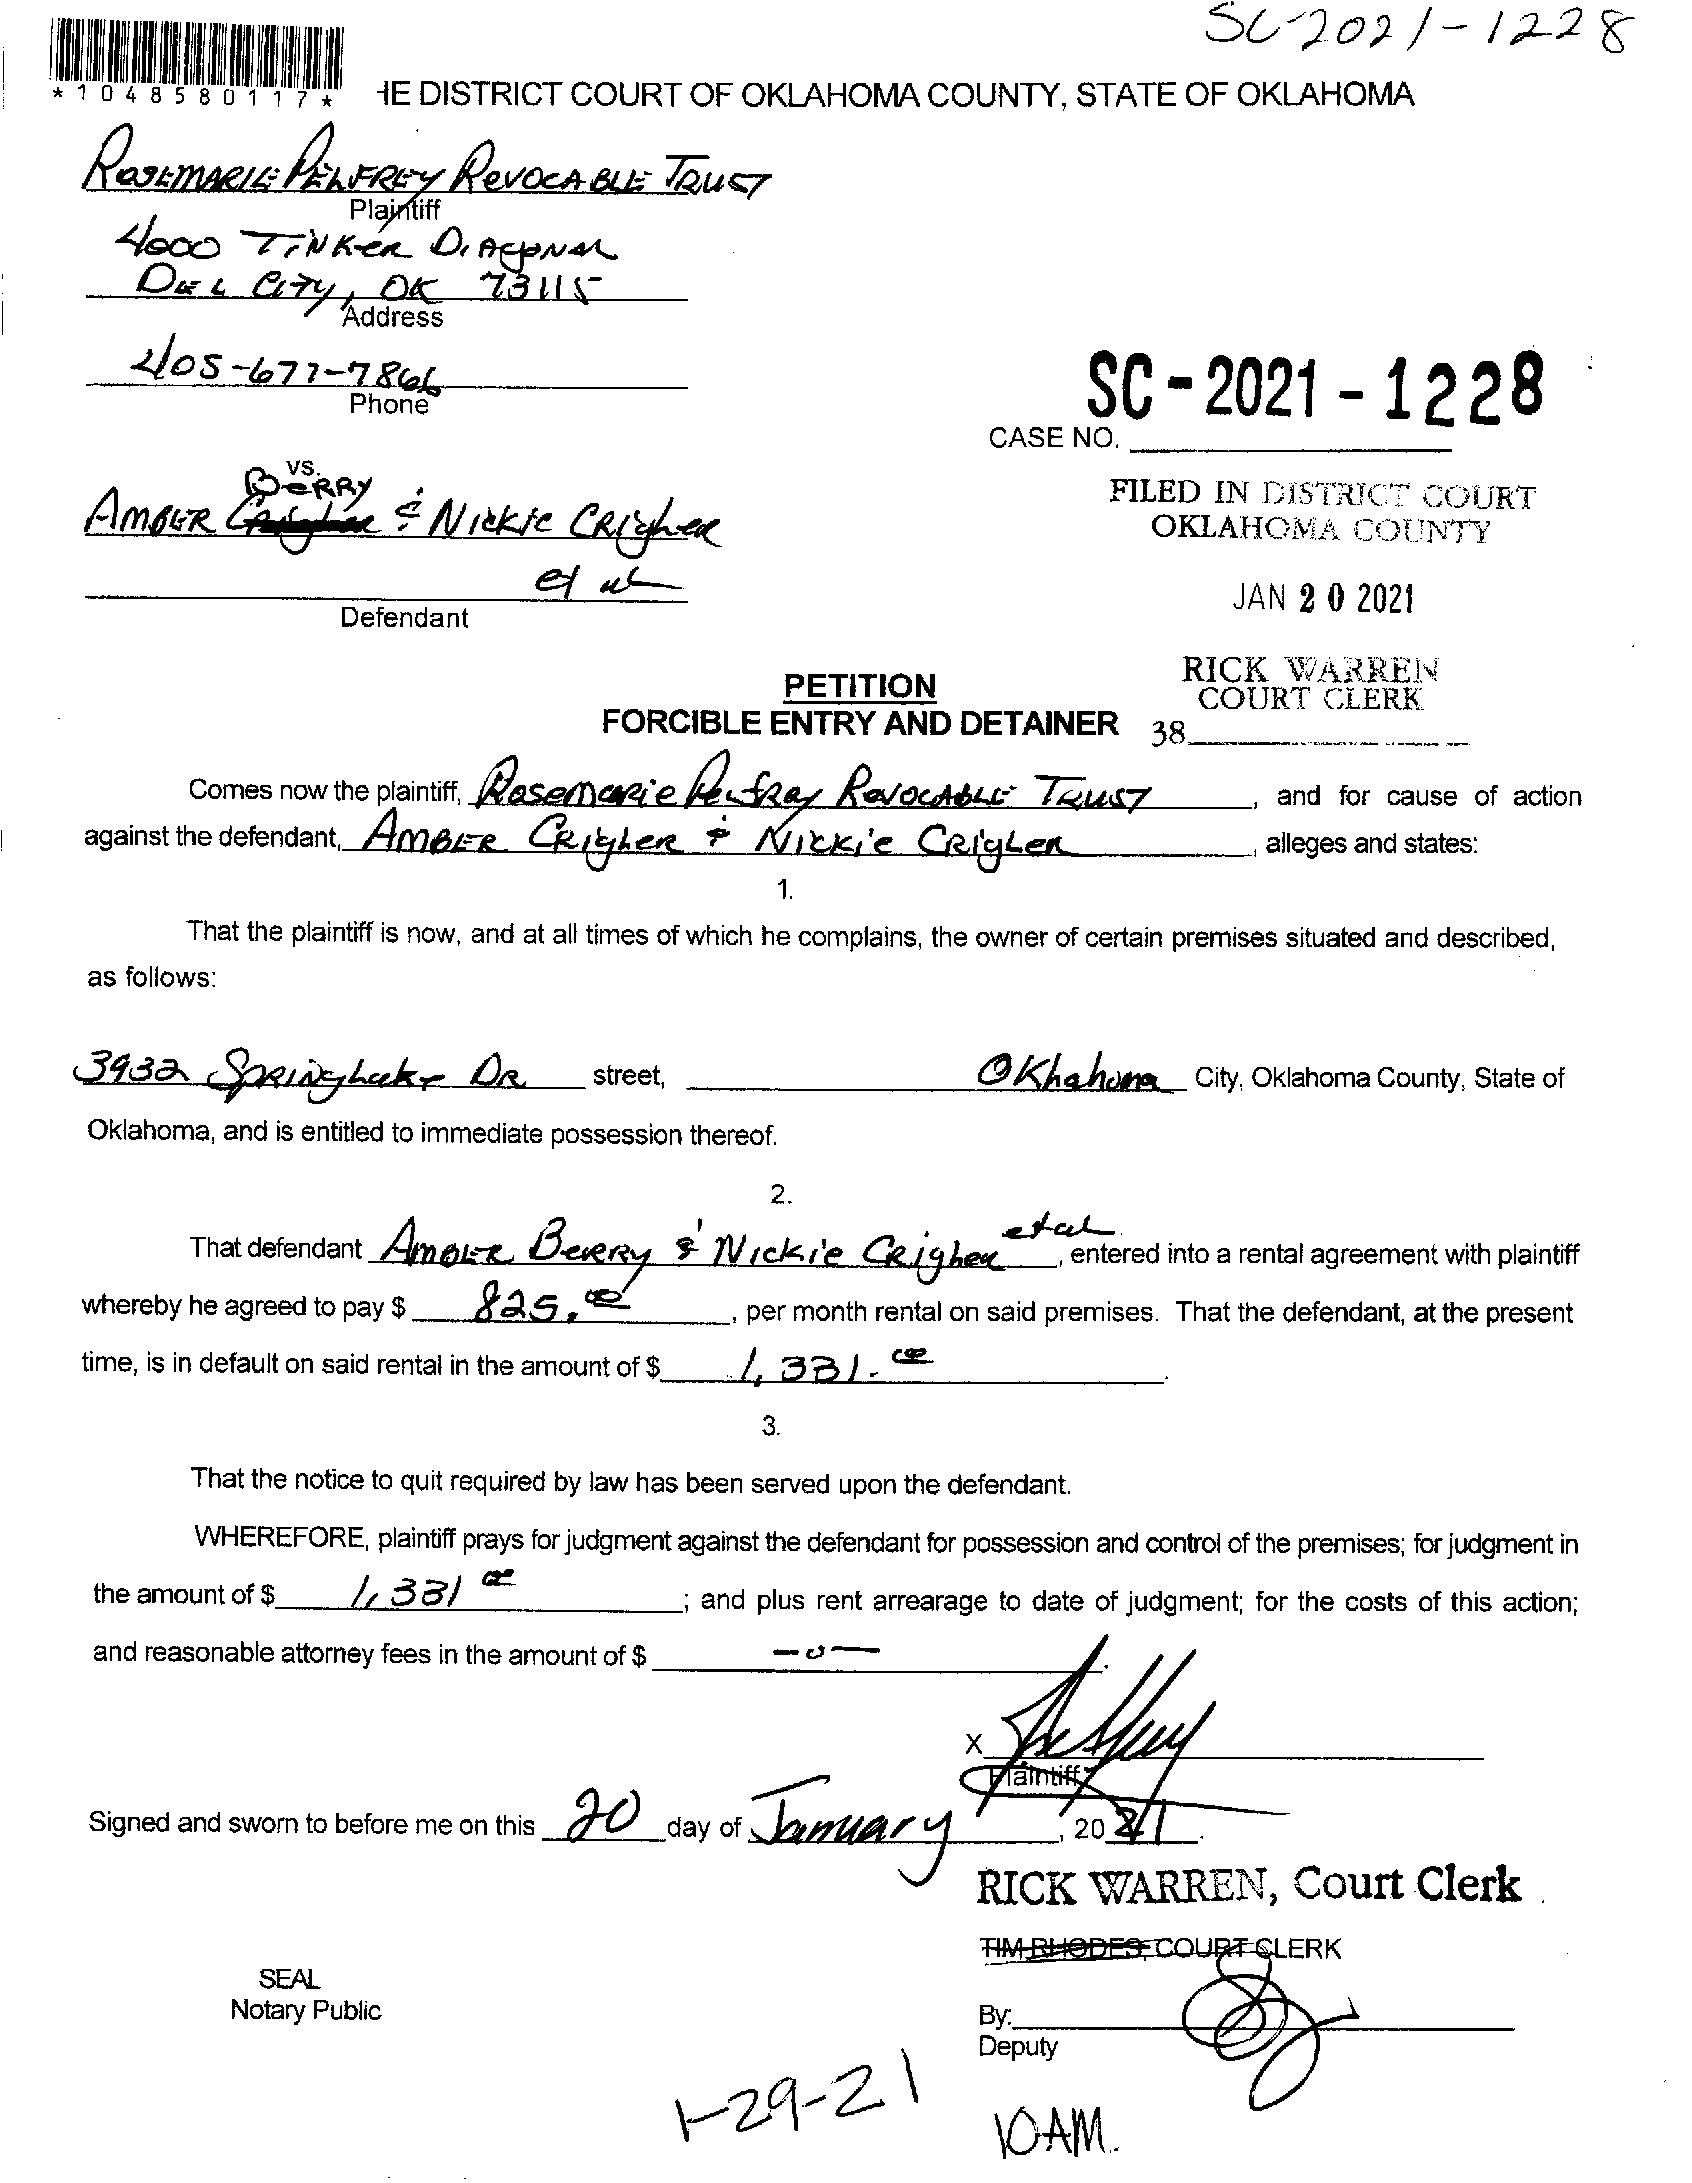 SC-2021-1228
*1048580117*
HE DISTRICT COURT OF OKLAHOMA COUNTY, STATE OF OKLAHOMA
ROSEMARIE PELFREY REVOCABLE TRUST
Plaintiff
4000 TINKER DIAGONAL
DEL CITY, OK 73115
Address
405-677-7866
Phone
SC-2021-1228
CASE NO.
vs.
BERRY
AMBER Crigler & NICKIE CRIGLER
et al
Defendant
FILED IN DISTRICT COURT
OKLAHOMA COUNTY
JAN 20 2021
RICK WARREN
COURT CLERK
38
PETITION
FORCIBLE ENTRY AND DETAINER
Comes now the plaintiff, Rosemarie Pelfrey Revocable Trust, and for cause of action
against the defendant, AMBER CRIGLER & NICKIE CRIGLER, alleges and states:
1.
That the plaintiff is now, and at all times of which he complains, the owner of certain premises situated and described,
as follows:
3932 Springlake DR street, Oklahoma City, Oklahoma County, State of
Oklahoma, and is entitled to immediate possession thereof.
2.
That defendant AMBER BERRY & Nickie Crigler et al, entered into a rental agreement with plaintiff
whereby he agreed to pay $ 825.00, per month rental on said premises. That the defendant, at the present
time, is in default on said rental in the amount of $ 1,331.00.
3.
That the notice to quit required by law has been served upon the defendant.
WHEREFORE, plaintiff prays for judgment against the defendant for possession and control of the premises; for judgment in
the amount of $ 1,331 00; and plus rent arrearage to date of judgment; for the costs of this action;
and reasonable attorney fees in the amount of $ -0-.
X
Plaintiff
Signed and sworn to before me on this 20 day of January, 2021.
RICK WARREN, Court Clerk
TIM RHODES, COURT CLERK
SEAL
Notary Public
By:
Deputy
1-29-21
10AM.